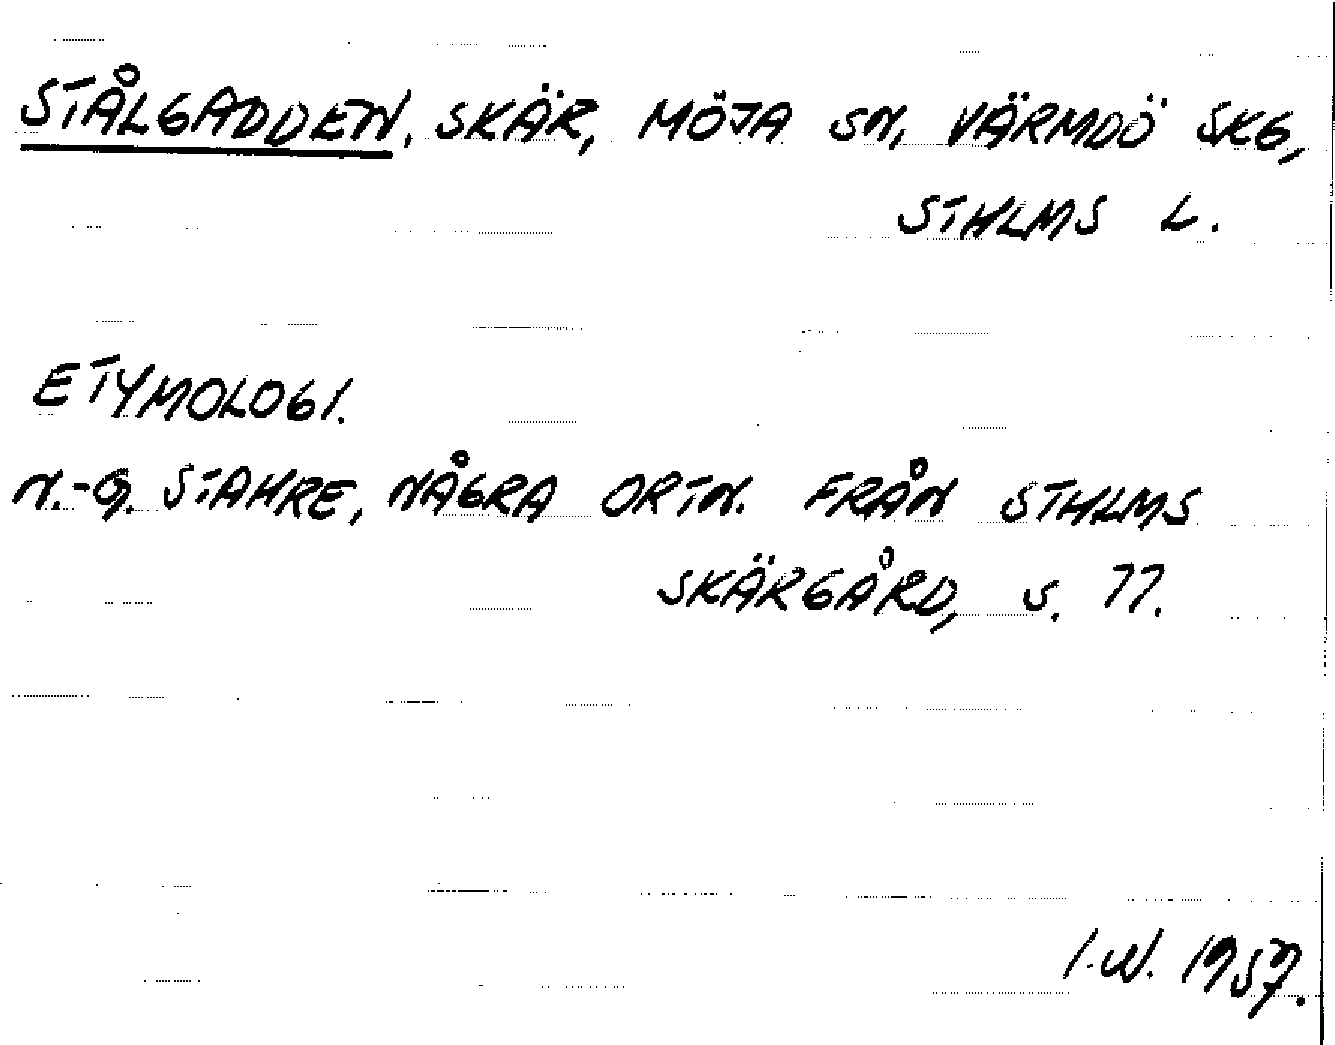 STÅLGADDEN, SKÄR, MÖJA SN, VÄRMDÖ SKG,
STHLMS L.
ETYMOLOGI.
N.-G. STAHRE, NÅGRA ORTN. FRÅN STHLMS
SKÄRGÅRD, S. 77.
I.W. 1957.